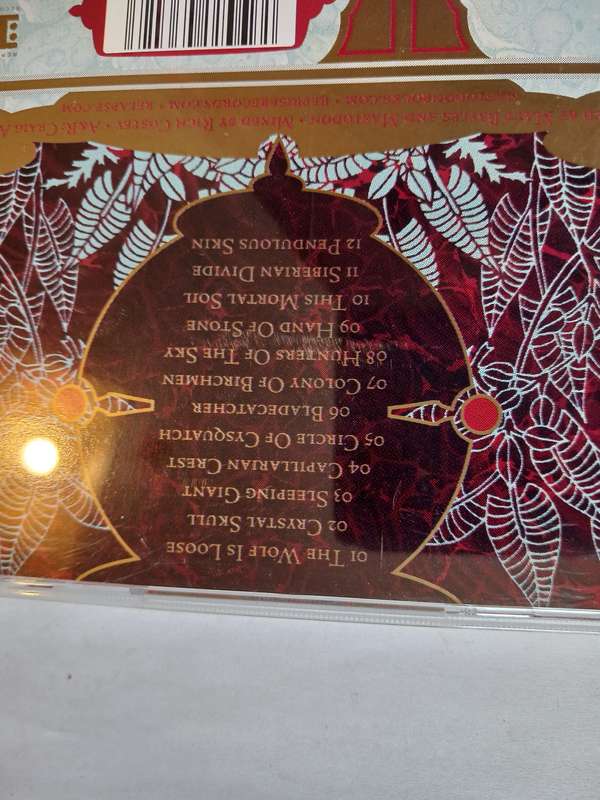 01 THE WOLF IS LOOSE
02 CRYSTAL SKULL
03 SLEEPING GIANT
04 CAPILLARIAN CREST
05 CIRCLE OF CYSQUATCH
06 BLADECATCHER
07 COLONY OF BIRCHMEN
08 HUNTERS OF THE SKY
09 HAND OF STONE
10 THIS MORTAL SOIL
11 SIBERIAN DIVIDE
12 PENDULOUS SKIN
BY MATT BAYLES AND MASTODON • MIXED BY RICH COSTEY • A&R: CRAIG A
REPRISERECORDS.COM • RELAPSE.COM